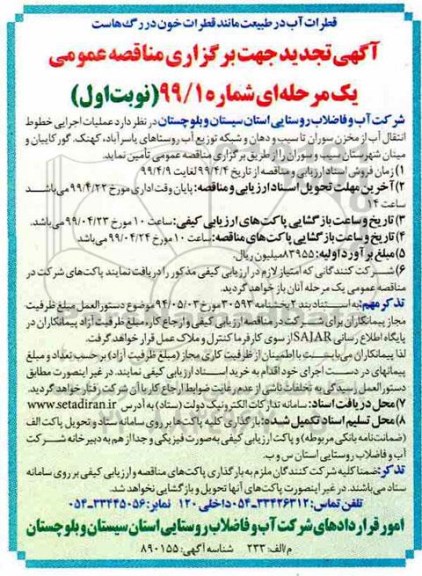 قطرات آب در طبیعت مانند قطرات خون در رگ هاست
آگهی تجدید جهت برگزاری مناقصه عمومی
یک مرحله ای شماره ۹۹/۱ (نوبت اول)
شرکت آب و فاضلاب روستایی استان سیستان و بلوچستان در نظر دارد عملیات اجرایی خطوط
انتقال آب از مخزن سوران تا سیب و دهان و شبکه توزیع آب روستاهای یاسرآباد، کهنک، گورکاییان و
مینان شهرستان سیب و سوران را از طریق برگزاری مناقصه عمومی تأمین نماید.
۱) زمان فروش اسناد ارزیابی و مناقصه از تاریخ ۹۹/۴/۴ لغایت ۹۹/۴/۹
۲) آخرین مهلت تحویل اسناد ارزیابی و مناقصه: پایان وقت اداری مورخ ۹۹/۴/۲۲ می باشد
ساعت ۱۴
۳) تاریخ و ساعت بازگشایی پاکت های ارزیابی کیفی: ساعت ۱۰ مورخ ۹۹/۰۴/۲۳ می باشد.
۴) تاریخ و ساعت بازگشایی پاکت های مناقصه: ساعت ۱۰ مورخ ۹۹/۰۴/۲۴ می باشد
۵) مبلغ برآورد اولیه: ۸۳۹۵۵ میلیون ریال.
۶) شرکت کنندگانی که امتیاز لازم در ارزیابی کیفی مذکور را دریافت نمایند پاکت های شرکت در
مناقصه عمومی یک مرحله آنان باز خواهد گردید.
تذکر مهم: به استناد بند ۲ بخشنامه ۳۰۵۹۳ مورخ ۹۴/۰۵/۰۳ موضوع دستورالعمل مبلغ ظرفیت
مجاز پیمانکاران برای شرکت در مناقصه ارزیابی کیفی و ارجاع کار، مبلغ ظرفیت آزاد پیمانکاران در
پایگاه اطلاع رسانی SAJAR از سوی کارفرما کنترل و ملاک عمل قرار خواهد گرفت.
لذا پیمانکاران می بایست با اطمینان از ظرفیت کاری مجاز (مبلغ ظرفیت آزاد) بر حسب تعداد و مبلغ
پیمانهای در دست اجرای خود اقدام به خرید اسناد ارزیابی کیفی نمایند. در غیر اینصورت مطابق
دستورالعمل رسیدگی به تخلفات ناشی از عدم رعایت ضوابط ارجاع کار با آن شرکت رفتار خواهد گردید.
۷) محل دریافت اسناد: سامانه تدارکات الکترونیک دولت (ستاد) به آدرس www.setadiran.ir
۸) محل تسلیم اسناد تکمیل شده: بارگذاری کلیه پاکت ها بر روی سامانه ستاد و تحویل پاکت الف
(ضمانت نامه بانکی مربوطه) و پاکت ارزیابی کیفی به صورت فیزیکی و جدا از هم به دبیرخانه شرکت
آب و فاضلاب روستایی استان س و ب.
تذکر: ضمنا کلیه شرکت کنندگان ملزم به بارگذاری پاکت های مناقصه و ارزیابی کیفی بر روی سامانه
ستاد می باشند. در غیر اینصورت پاکت های آنها تحویل و بازگشایی نخواهد شد.
تلفن تماس: ۳۳۴۲۶۳۱۲-۰۵۴ داخلی ۱۲۰ نمابر: ۳۳۴۴۵۰۵۶-۰۵۴
امور قراردادهای شرکت آب و فاضلاب روستایی استان سیستان و بلوچستان
م/الف: ۲۳۳ شناسه آگهی: ۸۹۰۱۵۵